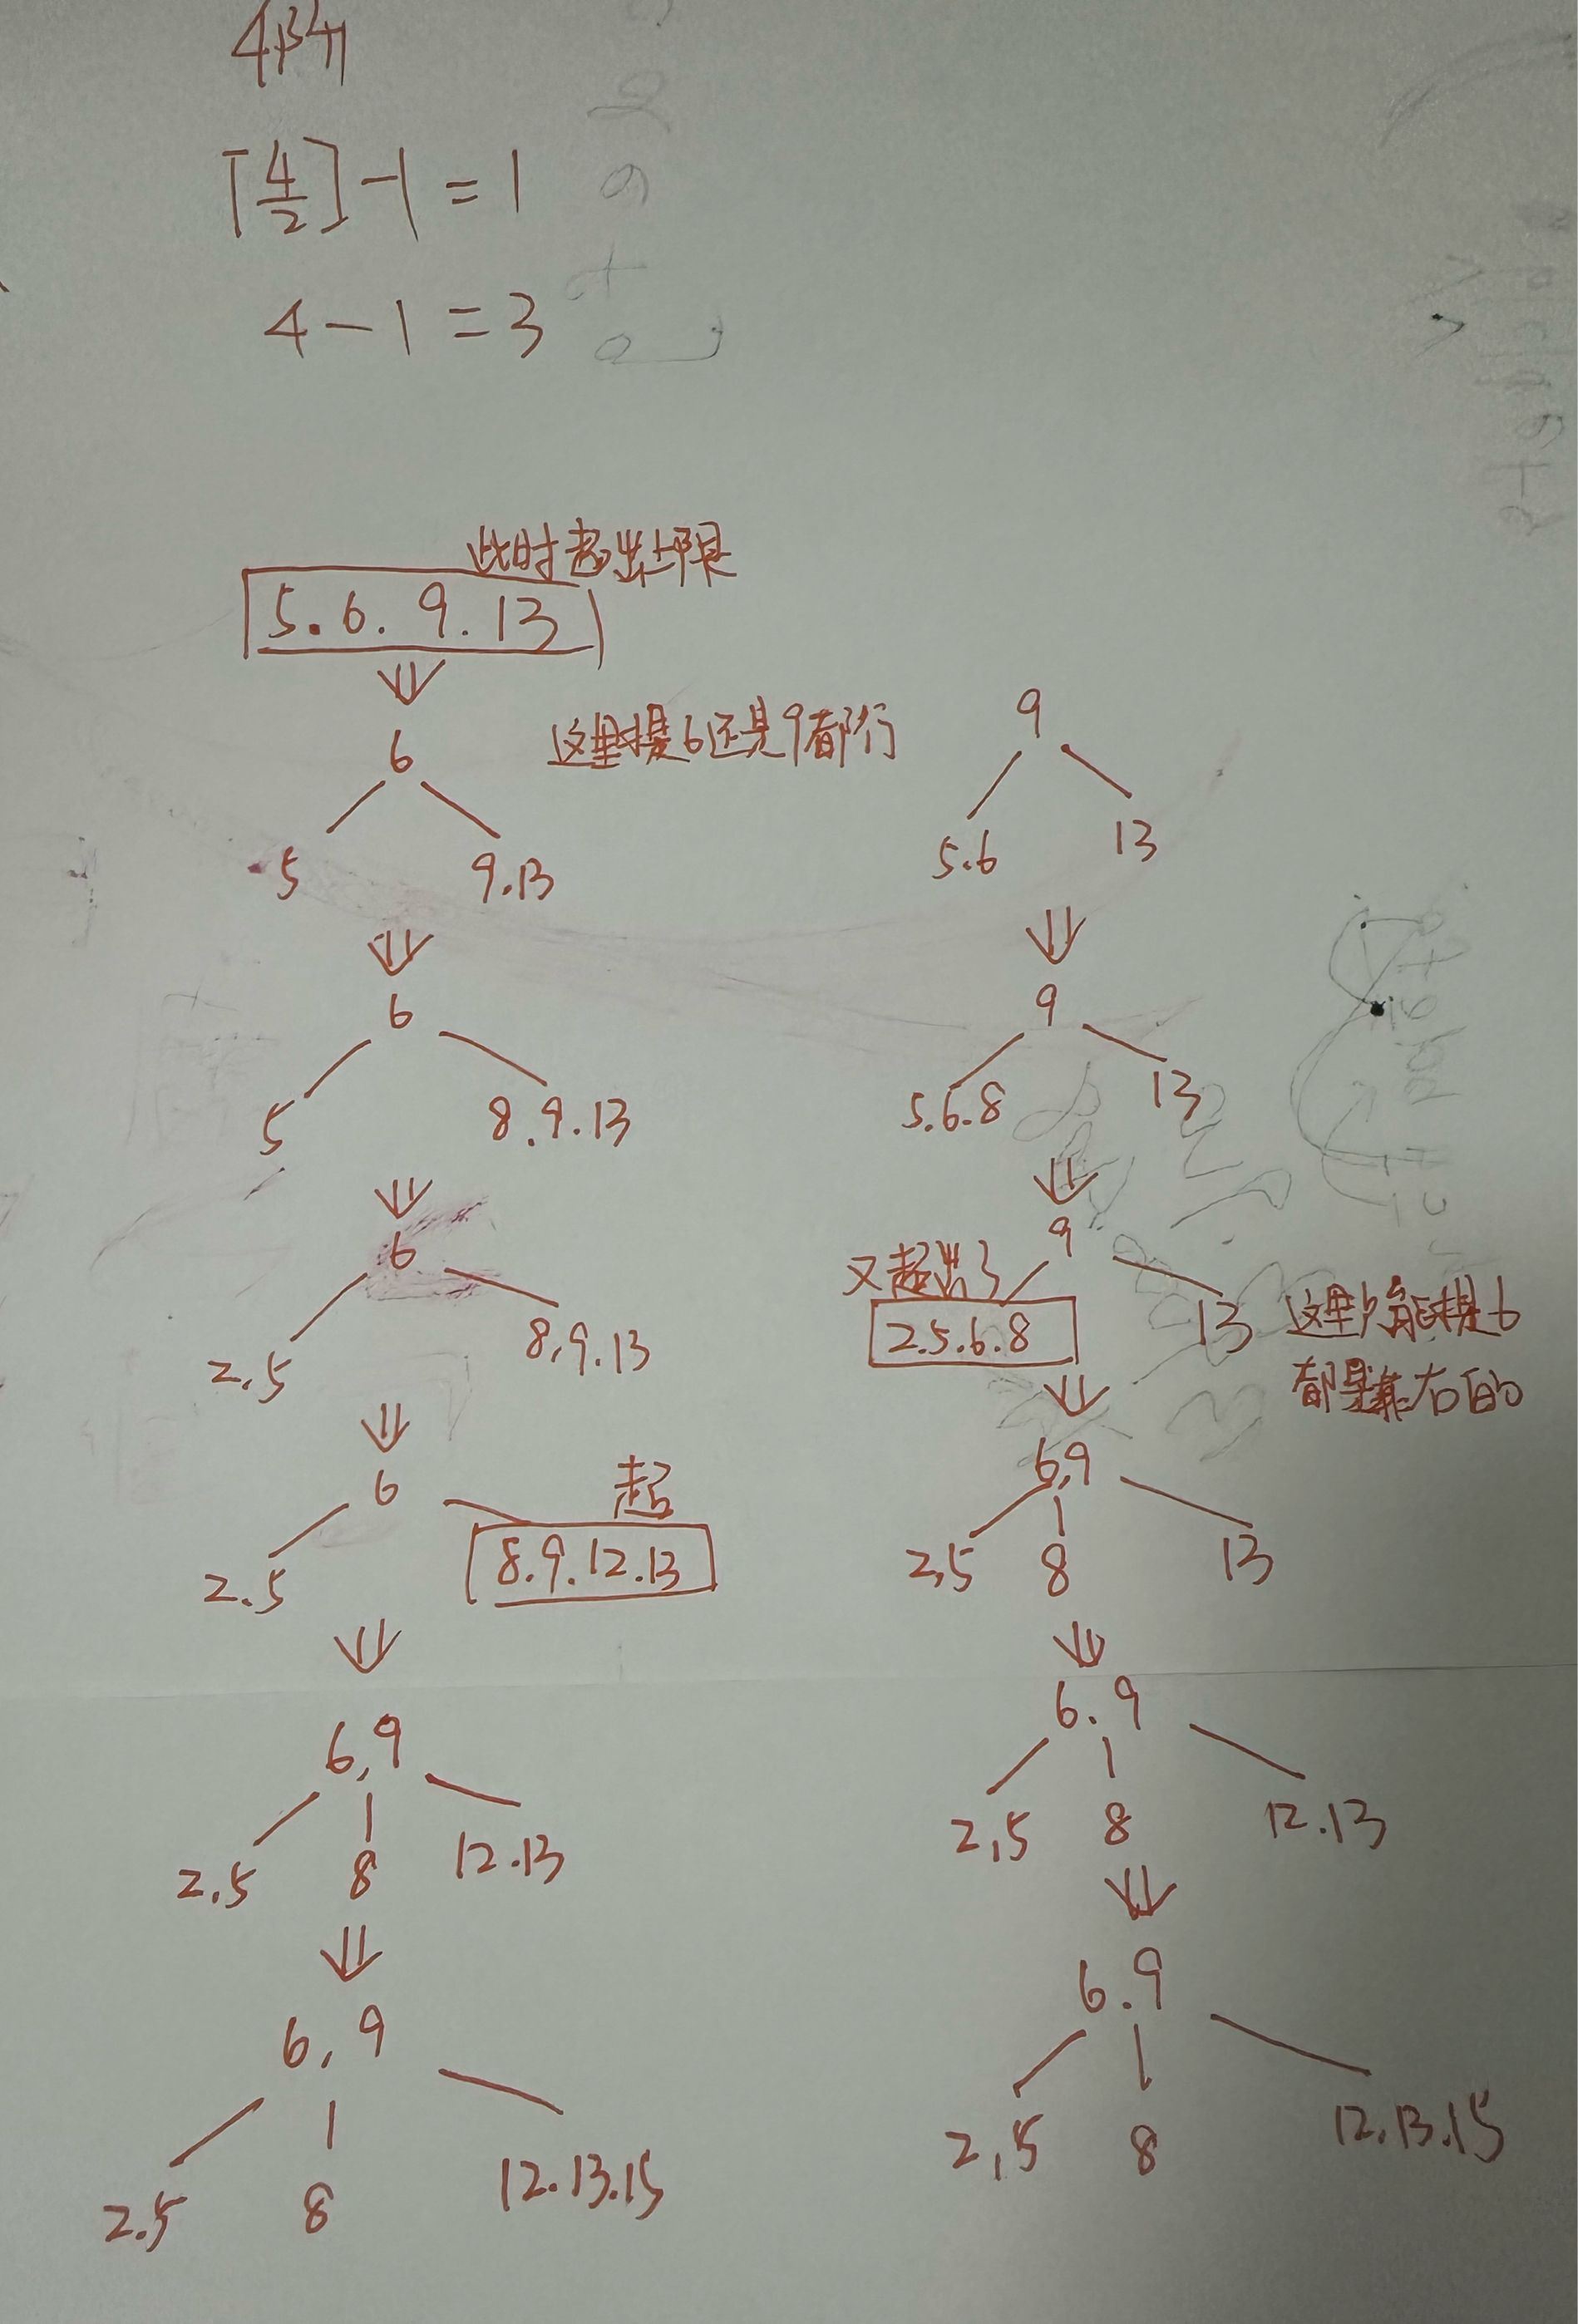 [4/2]-1=1
4-1=3
此时超出上限
5.6.9.13
6
5 9.13
6
5 8.9.13
6
2.5 8.9.13
6
超
2.5 8.9.12.13
6,9
2.5 8 12.13
6,9
2.5 8 12.13.15
这里提6还是9都行
9
5.6 13
9
5.6.8 13
9
又超出了
2.5.6.8 13
这里只能提6
都是靠右的
6,9
2,5 8 13
6.9
2,5 8 12.13
6.9
2,5 8 12.13.15